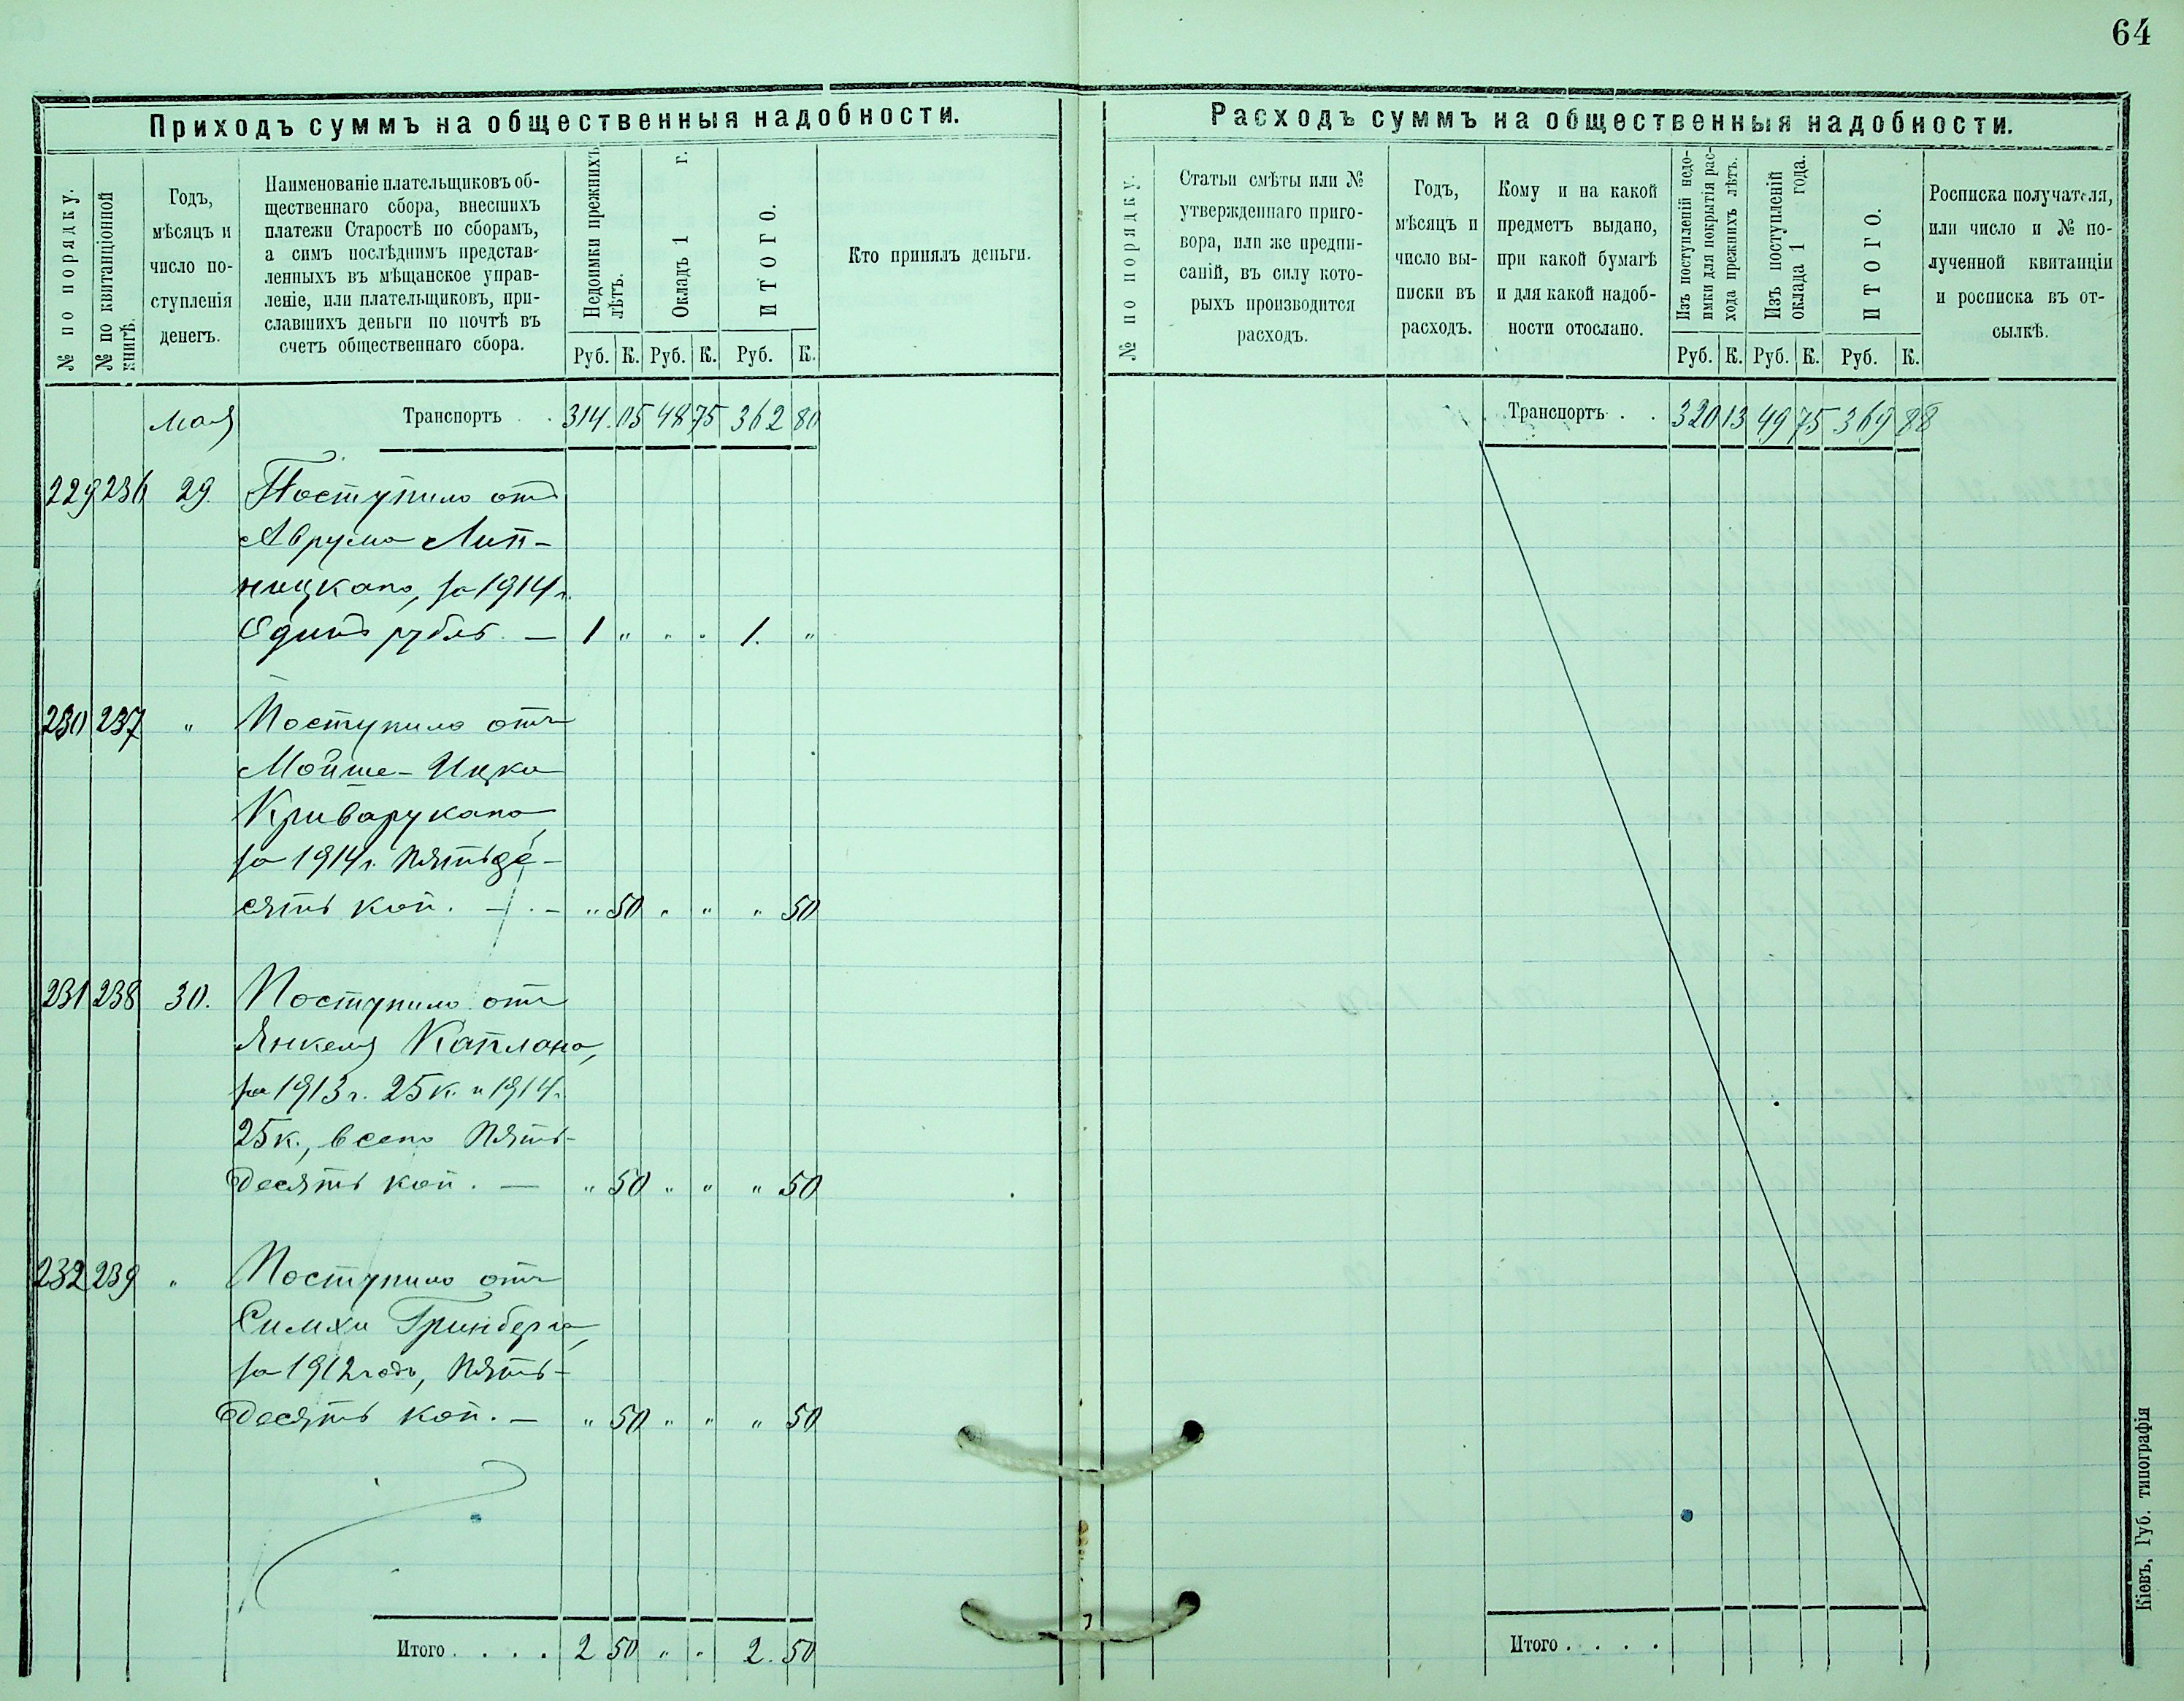 64
Приходъ суммъ на общественныя надобности.
№ по порядку.
№ по квитанціонной
книгѣ.
Годъ,
мѣсяцъ и
число по-
ступленія
денегъ.
Наименованіе плательщиковъ об-
щественнаго сбора, внесшихъ
платежи Старостѣ по сборамъ,
а симъ послѣднимъ представ-
ленныхъ въ мѣщанское управ-
леніе, или плательщиковъ, при-
славшихъ деньги по почтѣ въ
счетъ общественнаго сбора.
Недоимки прежнихъ
лѣтъ.
Окладъ 1 г.
ИТОГО.
Руб. К. Руб. К. Руб. К.
Кто принялъ деньги.
мая Транспортъ . . 314. 05 48 75 362 80
229 236 29. Поступило отъ
Аврума Лип-
ницкаго, за 1914 г.
Одинъ рубль. — 1 " " " 1. "
230 237 " Поступило отъ
Мойше-Ицка
Криварукаго
за 1914 г. пятьде-
сятъ коп. — . — " 50 " " " 50
231 238 30. Поступило отъ
Янкеля Каплана,
за 1913 г. 25 к. и 1914 г.
25 к., всего пять-
десятъ коп. — " 50 " " " 50
232 239 " Поступило отъ
Симхи Гринберга,
за 1912 годъ, пять-
десятъ коп. — " 50 " " " 50
Итого . . . . 2 50 " " 2. 50
Расходъ суммъ на общественныя надобности.
№ по порядку.
Статьи смѣты или №
утвержденнаго приго-
вора, или же предпи-
саній, въ силу кото-
рыхъ производится
расходъ.
Годъ,
мѣсяцъ и
число вы-
писки въ
расходъ.
Кому и на какой
предметъ выдано,
при какой бумагѣ
и для какой надоб-
ности отослано.
Изъ поступленій недо-
имки для покрытія рас-
хода прежнихъ лѣтъ.
Изъ поступленій
оклада 1 года.
ИТОГО.
Руб. К. Руб. К. Руб. К.
Росписка получателя,
или число и № по-
лученной квитанціи
и росписка въ от-
сылкѣ.
Транспортъ . . 320 13 49 75 369 88
Итого . . . .
Кіевъ, Губ. типографія